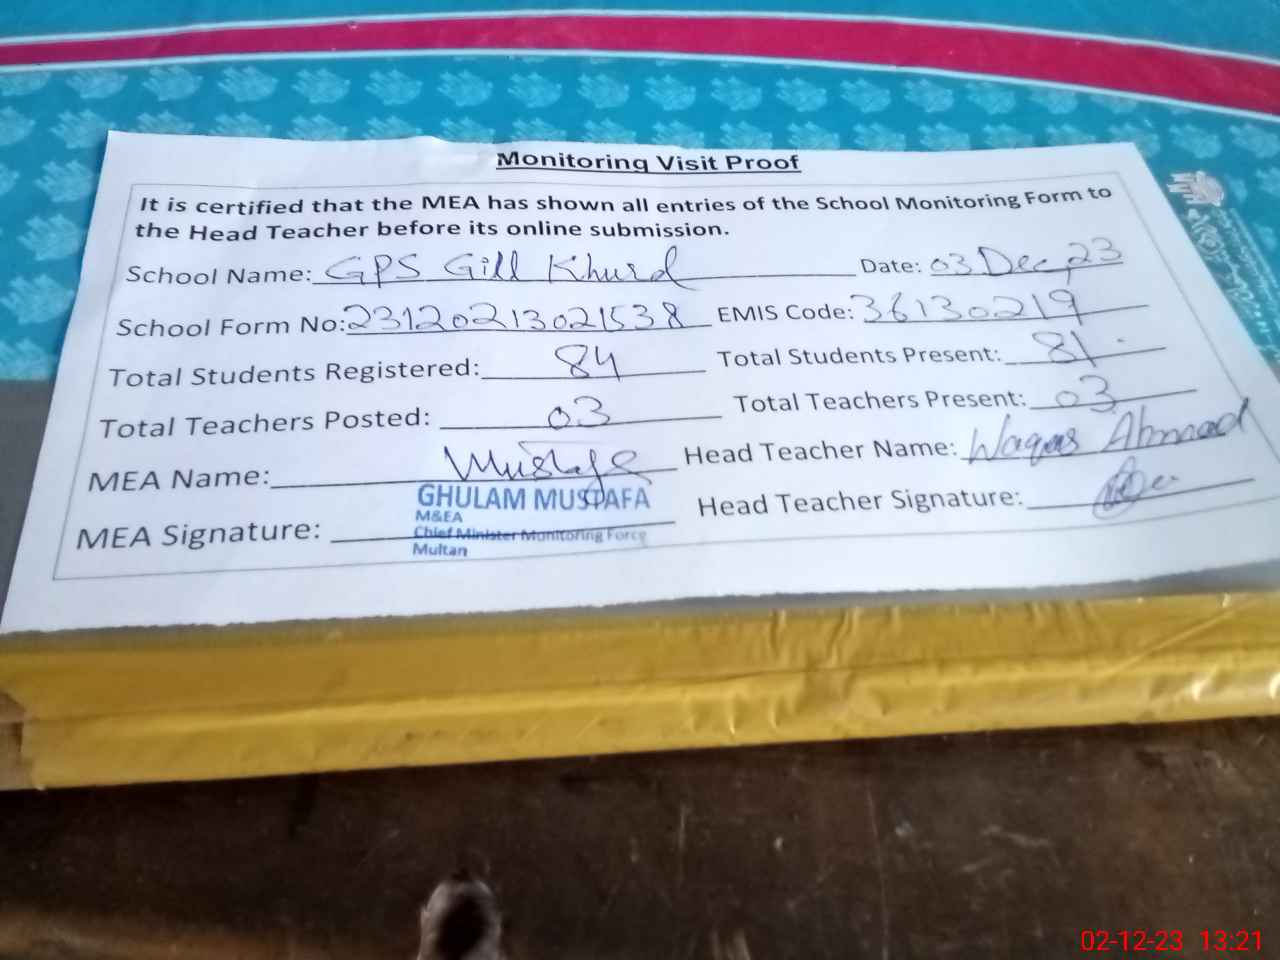 Monitoring Visit Proof
It is certified that the MEA has shown all entries of the School Monitoring Form to
the Head Teacher before its online submission.
School Name: GPS Gill Khurd Date: 03 Dec, 23
School Form No: 23120213021538 EMIS Code: 36130219
Total Students Registered: 84 Total Students Present: 81
Total Teachers Posted: 03 Total Teachers Present: 03
MEA Name: Mustafa Head Teacher Name: Waqas Ahmad
MEA Signature: Head Teacher Signature:
GHULAM MUSTAFA
M&EA
Chief Minister Monitoring Force
Multan
02-12-23 13:21